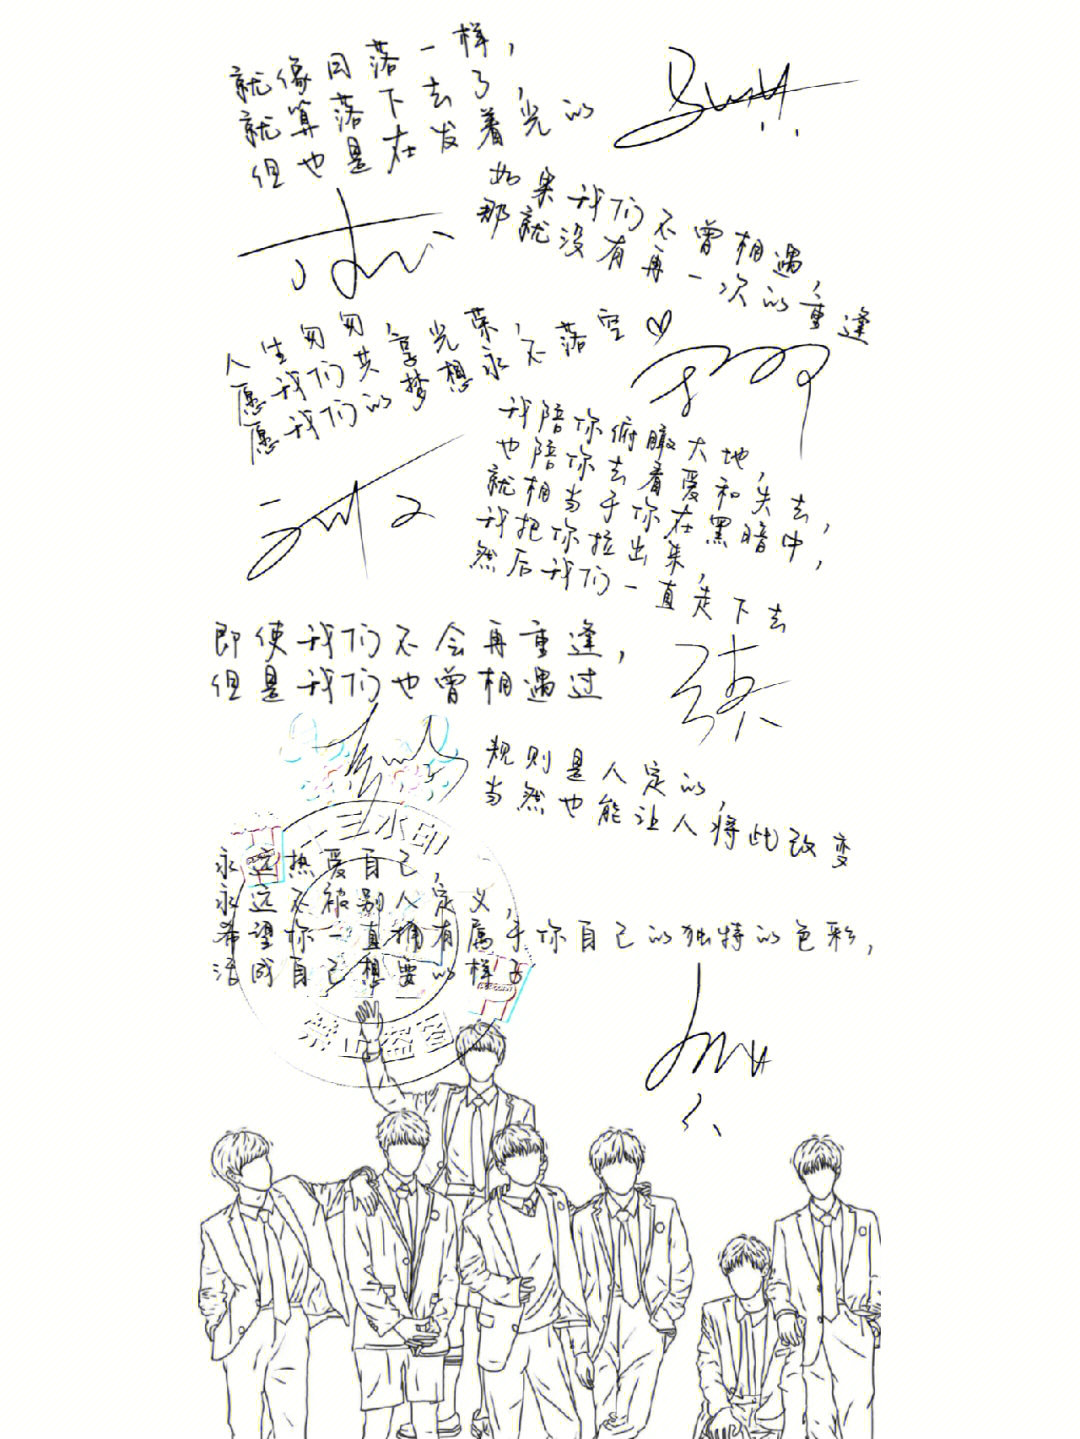 就像日落一样，
就算落下去了，
但也是在发着光的
如果我们不曾相遇，
那就没有再一次的重逢
人生匆匆，
愿我们共享光荣，
愿我们的梦想永不落空♡
我陪你俯瞰大地，
也陪你去看爱和失去，
就相当于你在黑暗中，
我把你拉出来，
然后我们一直走下去
即使我们不会再重逢，
但是我们也曾相遇过
规则是人定的，
当然也能让人将此改变
永远热爱自己，
永远不被别人定义，
希望你一直拥有属于你自己的独特的色彩，
活成自己想要的样子
水印
禁止盗